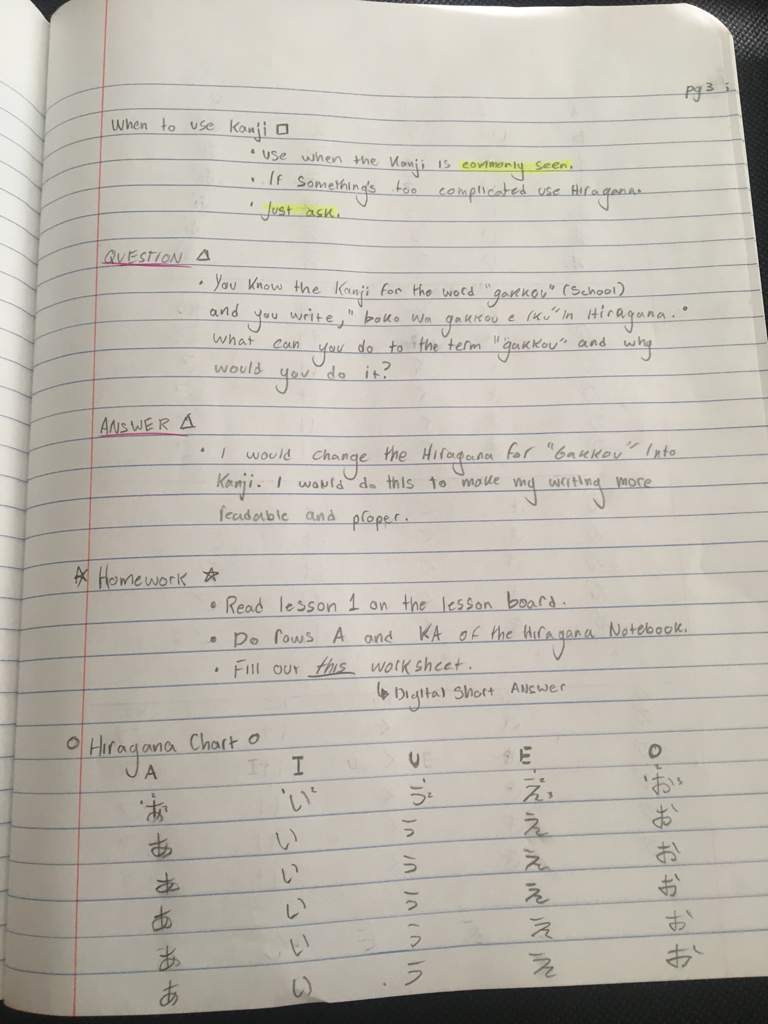 pg 3
When to use Kanji □
• Use when the Kanji is commonly seen.
• If something's too complicated use Hiragana.
• Just ask.
QUESTION △
• You know the Kanji for the word "gakkou" (School)
and you write, "boko wa gakkou e iku" in Hiragana.
What can you do to the term "gakkou" and why
would you do it?
ANSWER △
• I would change the Hiragana for "Gakkou" into
Kanji. I would do this to make my writing more
readable and proper.
☆ Homework ☆
• Read lesson 1 on the lesson board.
• Do rows A and KA of the Hiragana Notebook.
• Fill our this worksheet.
↳ Digital Short Answer
○ Hiragana Chart ○
A I U E O
あ い う え お
あ い う え お
あ い う え お
あ い う え お
あ い う え お
あ い う え お